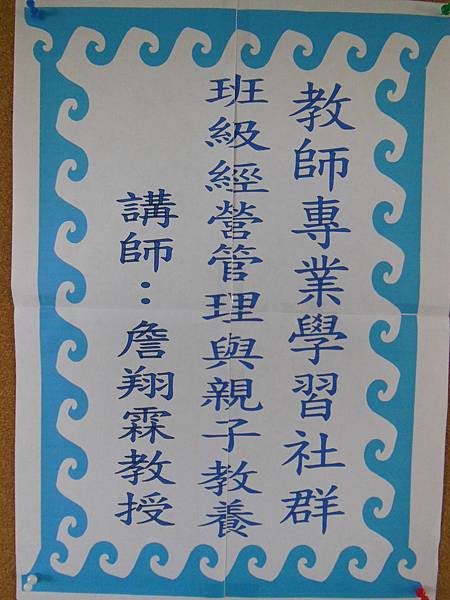 教師專業學習社群
班級經營管理與親子教養
講師：詹翔霖教授